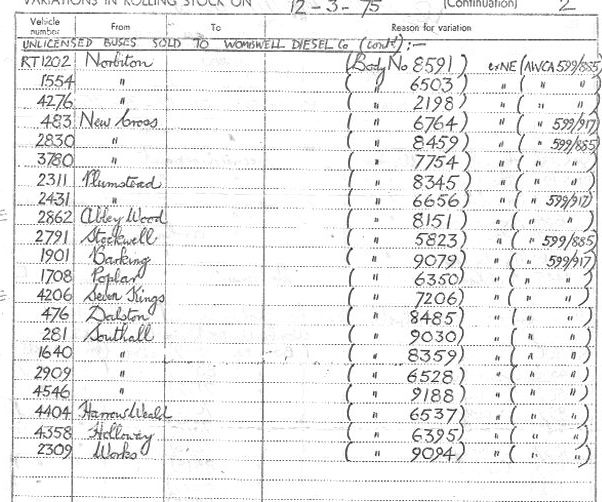 VARIATIONS IN ROLLING STOCK ON 12-3-75 (Continuation) 2
Vehicle number From To Reason for variation
UNLICENSED BUSES SOLD TO WOMBWELL DIESEL Co (contd):-
RT1202 Norbiton (Body No 8591) exNE (AWCA 599/885)
1554 " ( " 6503) " ( " " )
4276 " ( " 2198) " ( " " )
483 New Cross ( " 6764) " ( " 599/917)
2830 " ( " 8459) " ( " 599/885)
3780 " ( " 7754) " ( " " )
2311 Plumstead ( " 8345) " ( " " )
2431 " ( " 6656) " ( " 599/917)
2862 Abbey Wood ( " 8151) " ( " " )
2791 Stockwell ( " 5823) " ( " 599/885)
1901 Barking ( " 9079) " ( " 599/917)
1708 Poplar ( " 6350) " ( " " )
4206 Seven Kings ( " 7206) " ( " " )
476 Dalston ( " 8485) " ( " " )
281 Southall ( " 9030) " ( " " )
1640 " ( " 8359) " ( " " )
2909 " ( " 6528) " ( " " )
4546 " ( " 9188) " ( " " )
4404 Harrow Weald ( " 6537) " ( " " )
4358 Holloway ( " 6395) " ( " " )
2309 Works ( " 9094) " ( " " )